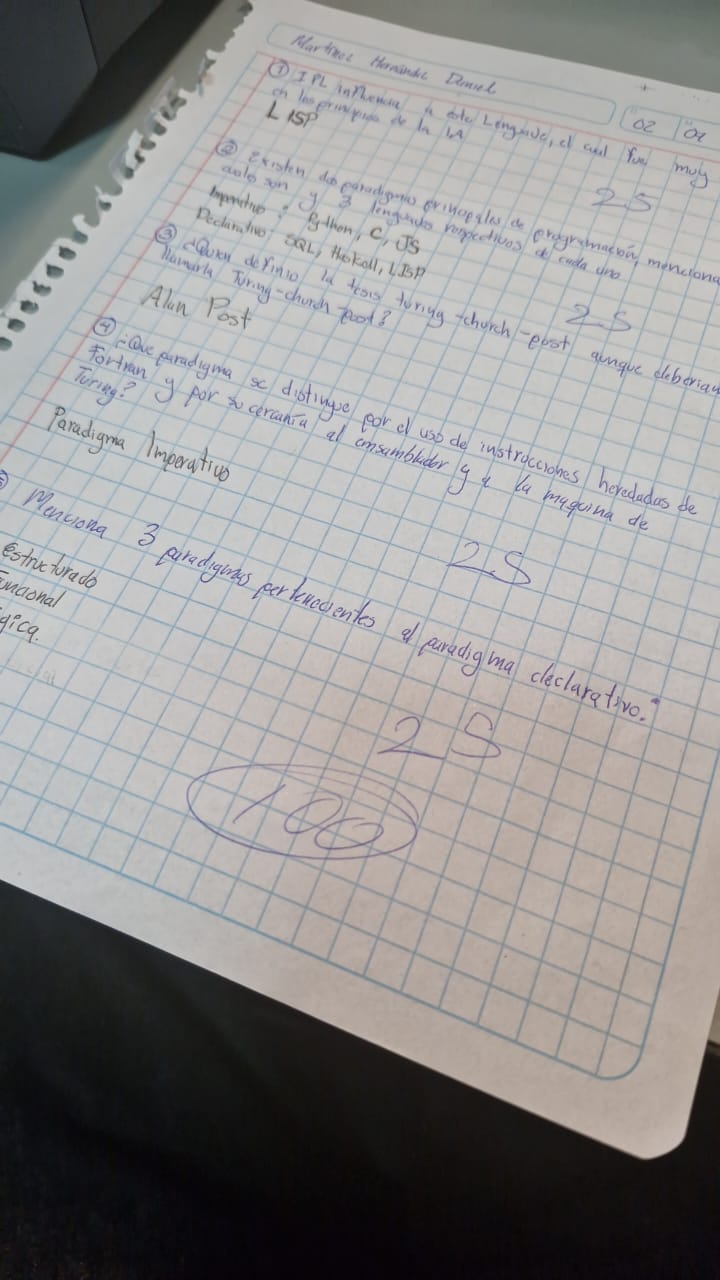 Martínez Hernández Daniel
02 02
① IPL influencia a este Lenguaje, el cual fue muy
en los principios de la IA
LISP
25
② Existen dos paradigmas principales de programación, menciona
cuales son y 3 lenguajes respectivos de cada uno
Imperativo: Python, C, JS
Declarativo: SQL, Haskell, LISP
25
③ ¿Quien definio la tesis turing-church-post aunque deberian
llamarla Turing-church-post?
Alan Post
④ ¿Que paradigma se distingue por el uso de instrucciones heredadas de
Fortran y por su cercanía al ensamblador y a la maquina de
Turing?
Paradigma Imperativo
25
Menciona 3 paradigmas pertenecientes al paradigma declarativo.
estructurado
uncional
gica.
25
100